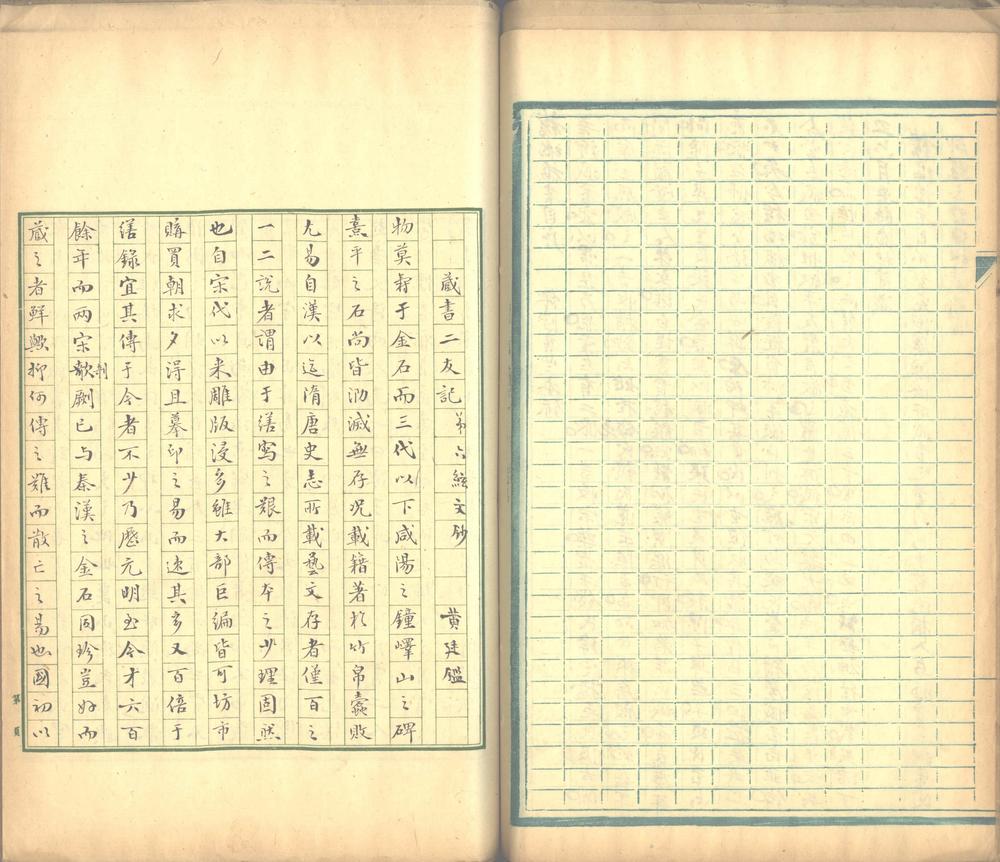 藏書二友記 第六絃文鈔 黄廷鑑
物莫壽于金石而三代以下咸陽之鐘嶧山之碑
熹平之石尚皆泐滅無存况載籍著於竹帛蠹敗
尤易自漢以迄隋唐史志所載藝文存者僅百之
一二說者謂由于繕寫之艱而傳本之少理固然
也自宋代以来雕版浸多雖大部巨编皆可坊市
購買朝求夕得且摹印之易而速其多又百倍于
繕錄宜其傳于今者不少乃歷元明至今才六百
餘年而兩宋㪣劂已与秦漢之金石同珍豈好而
剞
藏之者鮮歟抑何傳之難而散亡之易也國初以
第 頁